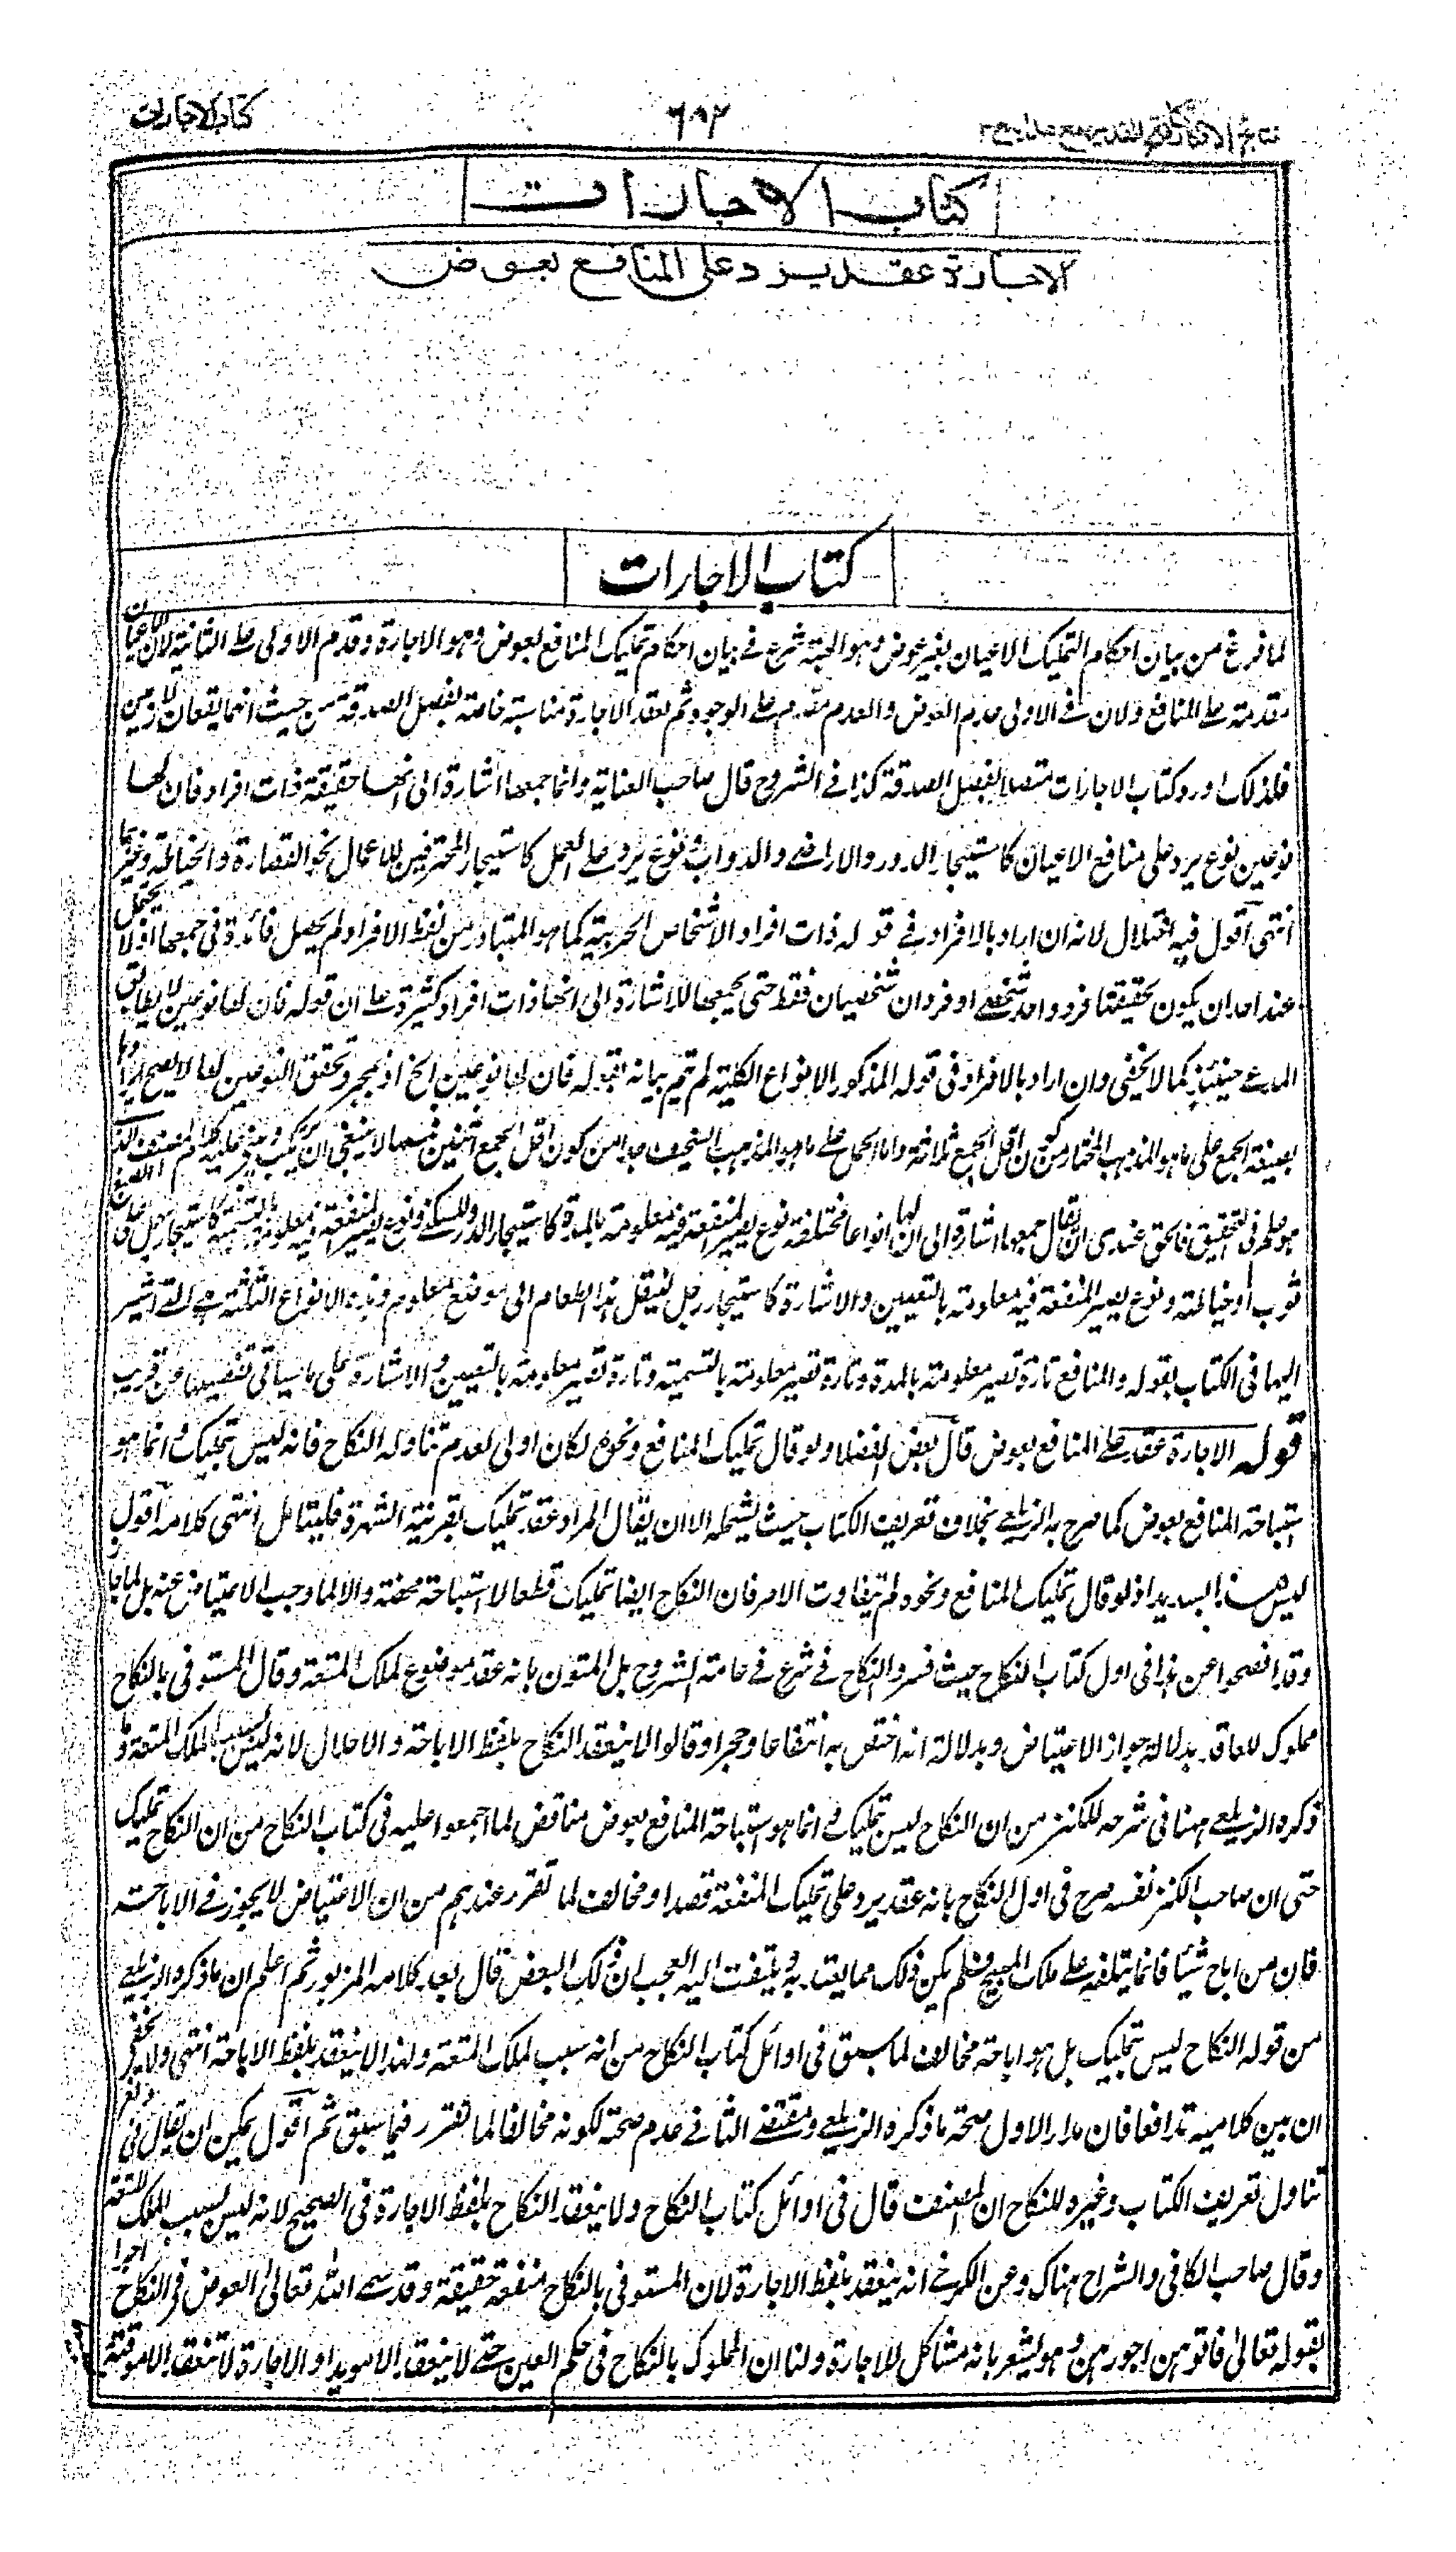 كتاب الاجارات
٦٠٢
نتائج الافكار تكملة فتح القدير مع هدايه ج ٣
كتاب الاجارات
الاجارة عقد يرد على المنافع بعوض
كتاب الاجارات
لما فرغ من بيان احكام التمليك الاعيان بغير عوض وهو الهبة شرع فے بيان احكام تمليك المنافع بعوض وهو الاجارة وقدم الاولى علے الثانية لان الاعيان
مقدمة علے المنافع ولان فے الاولى عدم العوض والعدم مقدم علے الوجود ثم لعقد الاجارة مناسبة خاصة بفصل الصدقة من حيث انهما يقعان لازمين
فلذلك اورد كتاب الاجارات متصلا بفصل الصدقة كذا فے الشروح قال صاحب العناية وانما جمعها اشارة الى انها حقيقة ذات افراد فان لها
نوعين نوع يرد على منافع الاعيان كاستيجار الدور والاراضے والدواب ونوع يرد علے العمل كاستيجار المحترفين للاعمال نحو القصارة والخياطة وغيرهما
انتهى اقول فيه اختلال لانه ان اراد بالافراد فے قوله ذات افراد الاشخاص الجزئية كما هو المتبادر من لفظ الافراد لم يحصل فائدة فى جمعها اذ لا يحتمل
عند احد ان يكون لحقيقتها فرد واحد شخصے او فردان شخصيان فقط حتى يجمعها للاشارة الى انها ذات افراد كثيرة علے ان قوله فان لها نوعين لا يطابق
المدعے حينئذ كما لا يخفى وان اراد بالافراد فى قوله المذكور الانواع الكلية لم يتم بيانه بقوله فان لها نوعين الخ اذ بمجرد تحقق النوعين لها لا يصح ايرادها
بصيغة الجمع على ما هو المذهب المختار من كون اقل الجمع ثلاثة واما الحمل علے ما هو المذهب السخيف جدا من كون اقل الجمع اثنين فمما لا ينبغى ان يرتكب
هو علم فى التحقيق فالحق عندى ان يقال جمعها اشارة الى ان لها انواعا مختلفة نوع يصير المنفعة فيه معلومة بالمدة كاستيجار الدور للسكنے ونوع يصير المنفعة فيه معلومة بالتسمية كاستيجار رجل على صبغ
ثوب او خياطته ونوع يصير المنفعة فيه معلومة بالتعيين والاشارة كاستيجار رجل لينقل هذا الطعام الى موضع معلوم وهذه الانواع الثلثة هے التے اشير
اليها فى الكتاب بقوله والمنافع تارة تصير معلومة بالمدة وتارة تصير معلومة بالتسمية وتارة تصير معلومة بالتعيين والاشارة على ما سياتى تفصيلها عن قريب
قوله الاجارة عقد علے المنافع بعوض قال بعض الفضلاء ولو قال تمليك المنافع ونحوه لكان اولى لعدم تناوله النكاح فانه ليس بتمليك وانما هو
استباحة المنافع بعوض كما صرح به الزيلعے بخلاف تعريف الكتاب حيث يشمله الا ان يقال المراد عقد تمليك بقرينة الشهرة فليتامل انتهى كلامه اقول
ليس هذا بسديد اذ لو قال تمليك المنافع ونحوه لم يتفاوت الامر فان النكاح ايضا تمليك قطعا لا استباحة محضة والا لما وجب الاعتياض عنه بل لما جاز
وقد افصحوا عن هذا فى اول كتاب النكاح حيث فسروا النكاح فے شرع فے عامة الشروح بل المتون بانه عقد موضوع لملك المتعة وقال المستوفى بالنكاح
مملوك للعاقد بدلالة جواز الاعتياض وبدلالة انه اختص به انتفاعا وحجرا وقالوا لا ينعقد النكاح بلفظ الاباحة والاحلال لانه ليس بسبب لملك المتعة وما
ذكره الزيلعے ههنا فى شرحه للكنز من ان النكاح ليس بتمليك وانما هو استباحة المنافع بعوض مناقض لما اجمعوا عليه فى كتاب النكاح من ان النكاح تمليك
حتى ان صاحب الكنز نفسه صرح فى اول النكاح بانه عقد يرد على تمليك المنفعة قصدا ومخالف لما تقرر عندهم من ان الاعتياض لا يجوز فے الاباحة
فان من اباح شيئا فانما يتلفه علے ملك المبيح فلم يكن ذلك مما يعتد به ويلتفت اليه العجب ان ذلك البعض قال بعد كلامه المزبور ثم اعلم ان ما ذكره الزيلعے
من قوله النكاح ليس بتمليك بل هو اباحة مخالف لما سبق فى اوائل كتاب النكاح من انه سبب لملك المتعة ولهذا لا ينعقد بلفظ الاباحة انتهى ولا يخفى
ان بين كلاميه تدافعا فان مدار الاول صحة ما ذكره الزيلعے ومقتضے الثانے عدم صحته لكونه مخالفا لما تقرر فيما سبق ثم اقول يمكن ان يقال فى دفع
تناول تعريف الكتاب وغيره للنكاح ان المصنف قال فى اوائل كتاب النكاح ولا ينعقد النكاح بلفظ الاجارة فى الصحيح لانه ليس بسبب لملك المتعة
وقال صاحب الكافى والشراح هناك وعن الكرخے انه ينعقد بلفظ الاجارة لان المستوفى بالنكاح منفعة حقيقة وقد سمے الله تعالى العوض فى النكاح اجرا
بقوله تعالى فاتوهن اجورهن وهو يشعر بانه مشاكل للاجارة ولنا ان المملوك بالنكاح فى حكم العين حتے لا ينعقد الا مؤبدا والاجارة لا تنعقد الا موقتة